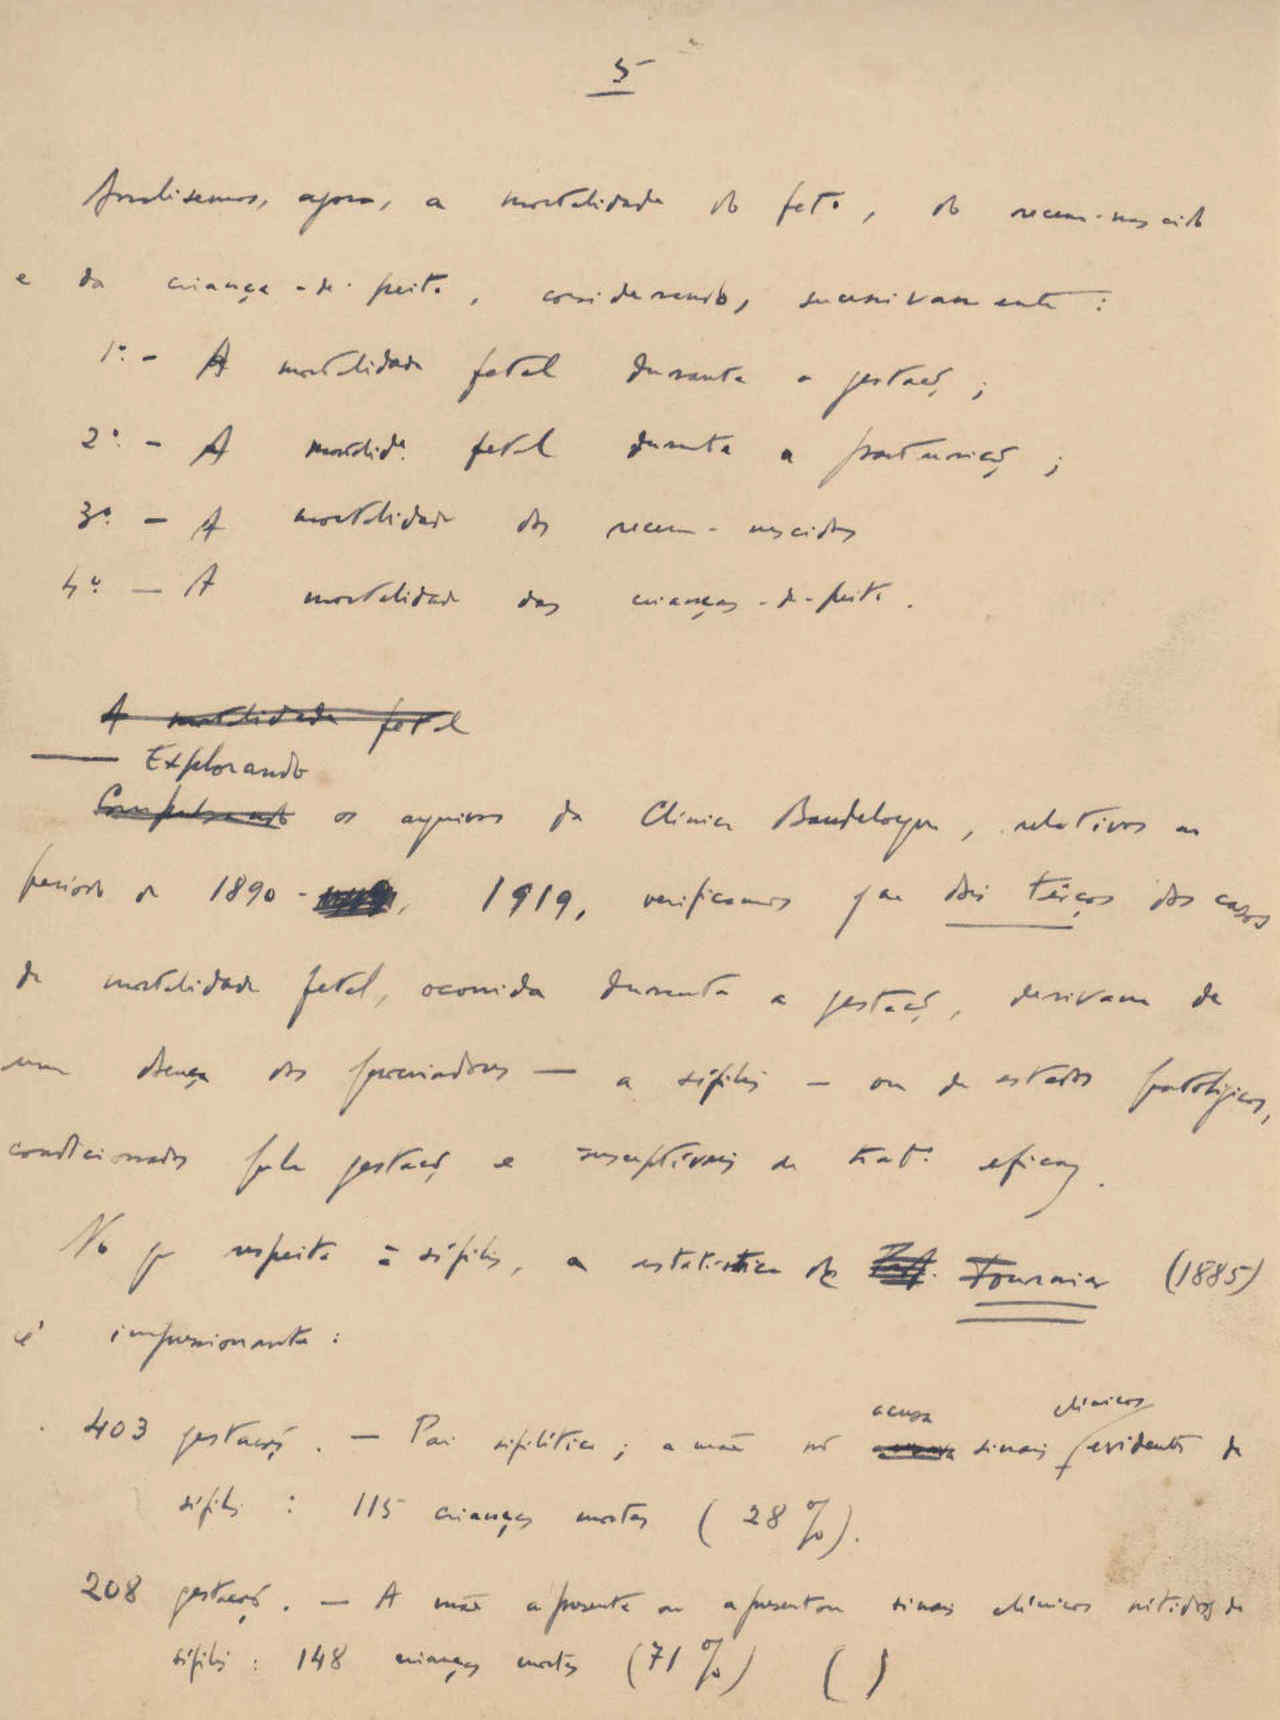 5
Analisemos, agora, a mortalidade do feto, do recem-nascido
e da criança-de-peito, considerando, sucessivamente:
1º - A mortalidade fetal durante a gestação;
2º - A mortalidᵉ fetal durante a parturição;
3º - A mortalidade dos recem-nascidos
4º - A mortalidade das crianças-de-peito.
A mortalidade fetal
— Explorando
Compulsando os arquivos da Clínica Baudelocque, relativos ao
período de 1890 - 1919, verificamos que dois terços dos casos
de mortalidade fetal, ocorrida durante a gestação, derivam de
uma doença dos procriadores — a sífilis — ou de estados patológicos,
condicionados pela gestação e susceptíveis de tratº eficaz.
No q̃ respeita à sífilis, a estatística de Fournier (1885)
é impressionante:
acusa clínicos
403 gestações. — Pai sifilítico; a mãe não sinais evidentes de
sífilis: 115 crianças mortas (28%).
208 gestações. — A mãe apresenta ou apresentou sinais clínicos nítidos de
sífilis: 148 crianças mortas (71%) ( )